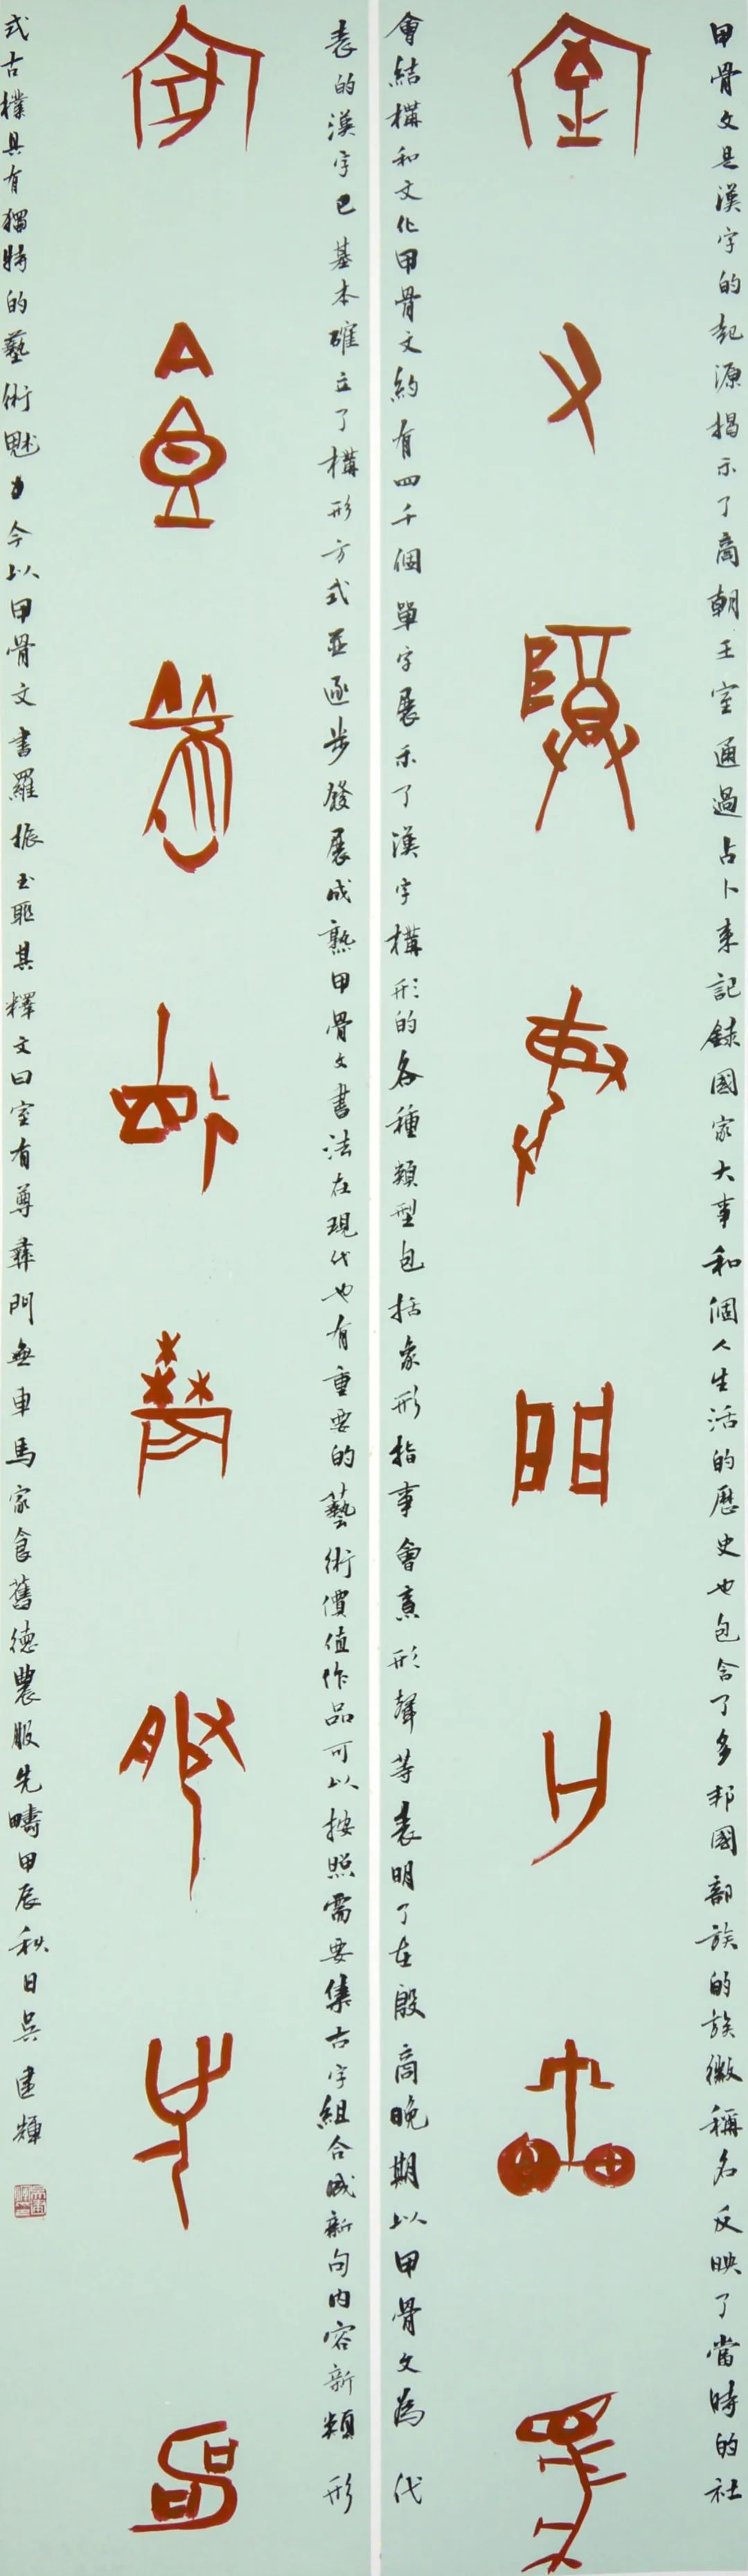 甲骨文是漢字的起源揭示了商朝王室通過占卜來記錄國家大事和個人生活的歷史也包含了多邦國部族的族徽稱名反映了當時的社
室有尊彝門無車馬
會結構和文化甲骨文約有四千個單字展示了漢字構形的各種類型包括象形指事會意形聲等表明了在殷商晚期以甲骨文為代
表的漢字已基本確立了構形方式並逐步發展成熟甲骨文書法在現代也有重要的藝術價值作品可以按照需要集古字組合成新句內容新穎形
家食舊德農服先疇
式古樸具有獨特的藝術魅力今以甲骨文書羅振玉聯其釋文曰室有尊彝門無車馬家食舊德農服先疇甲辰秋日吳建輝